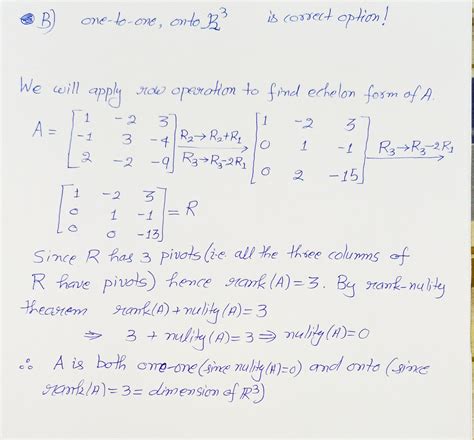 B) one-to-one, onto ℝ³ is correct option!
We will apply row operation to find echelon form of A.
A = [1 -2 3; -1 3 -4; 2 -2 -9] R₂→R₂+R₁, R₃→R₃-2R₁ [1 -2 3; 0 1 -1; 0 2 -15] R₃→R₃-2R₂
[1 -2 3; 0 1 -1; 0 0 -13] = R
Since R has 3 pivots (i.e. all the three columns of
R have pivots) hence rank(A)=3. By rank-nulity
thearem rank(A)+nulity(A)=3
⇒ 3 + nulity(A)=3 ⇒ nulity(A)=0
∴ A is both one-one (since nulity(A)=0) and onto (since
rank(A)=3= dimension of ℝ³)